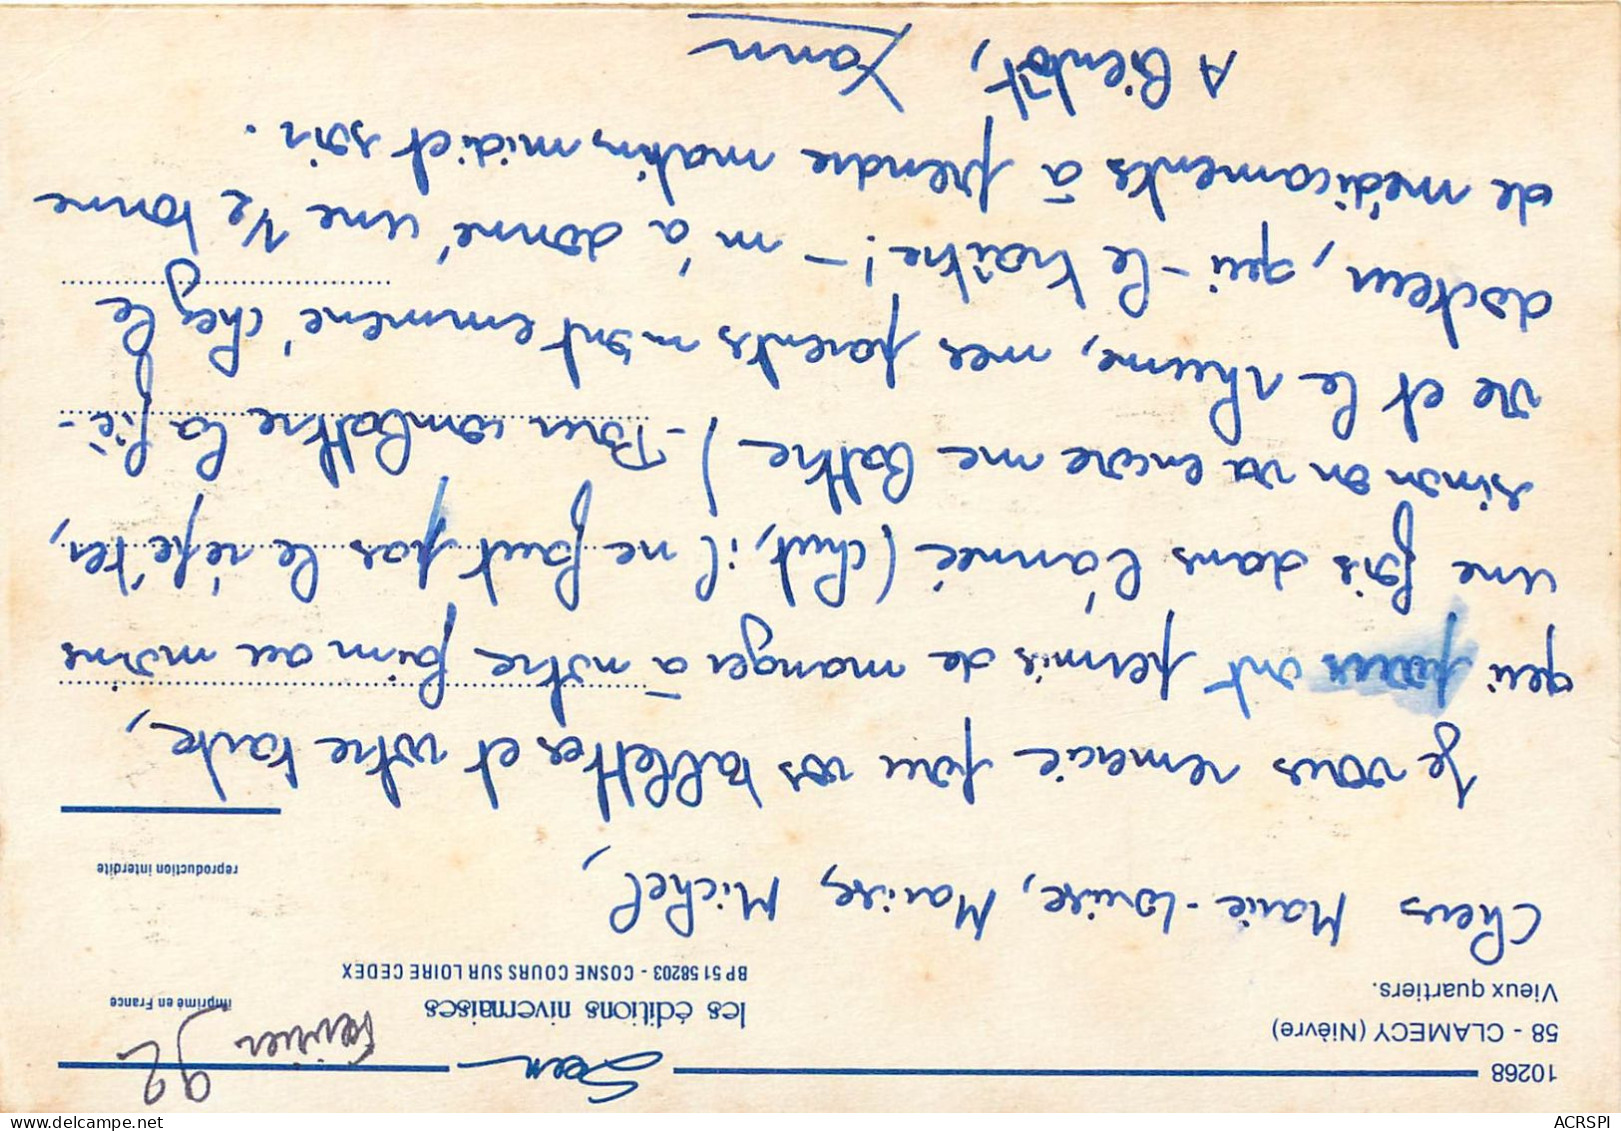 10268
58 - CLAMECY (Nièvre)
Vieux quartiers.
Février 92
les éditions nivernaises
BP 51 58203 - COSNE COURS SUR LOIRE CEDEX
imprimé en France
reproduction interdite
Chers Marie-Louise, Marise, Michel,
Je vous remercie pour vos tablettes et votre tarte,
qui nous ont permis de manger à notre faim au moins
une fois dans l'année (chut, il ne faut pas le répéter,
sinon on va encore me battre) - Pour combattre la fiè-
vre et le rhume, mes parents m'ont emmené chez le
docteur, qui - le traître! - m'a donné une 1/2 tonne
de médicaments à prendre matin, midi et soir.
A bientôt, Yann
ACRSPI